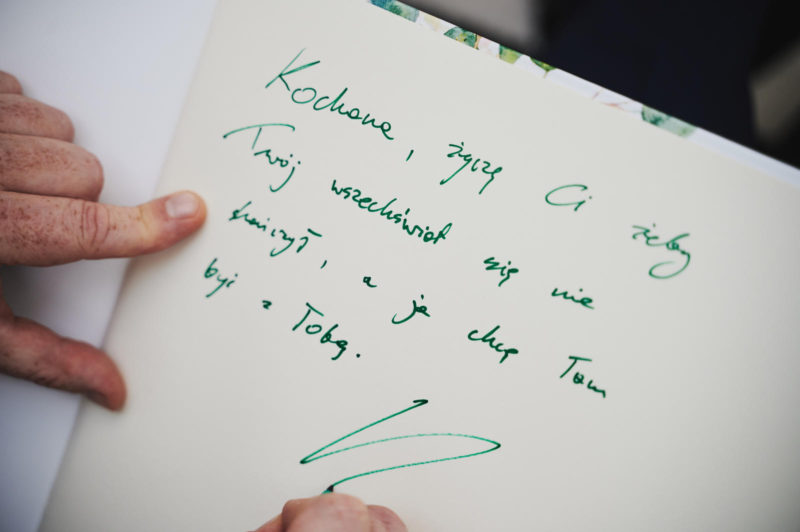 Kochana, życzę Ci żeby
Twój wszechświat się nie
skończył, a ja chcę Tam
być z Tobą.